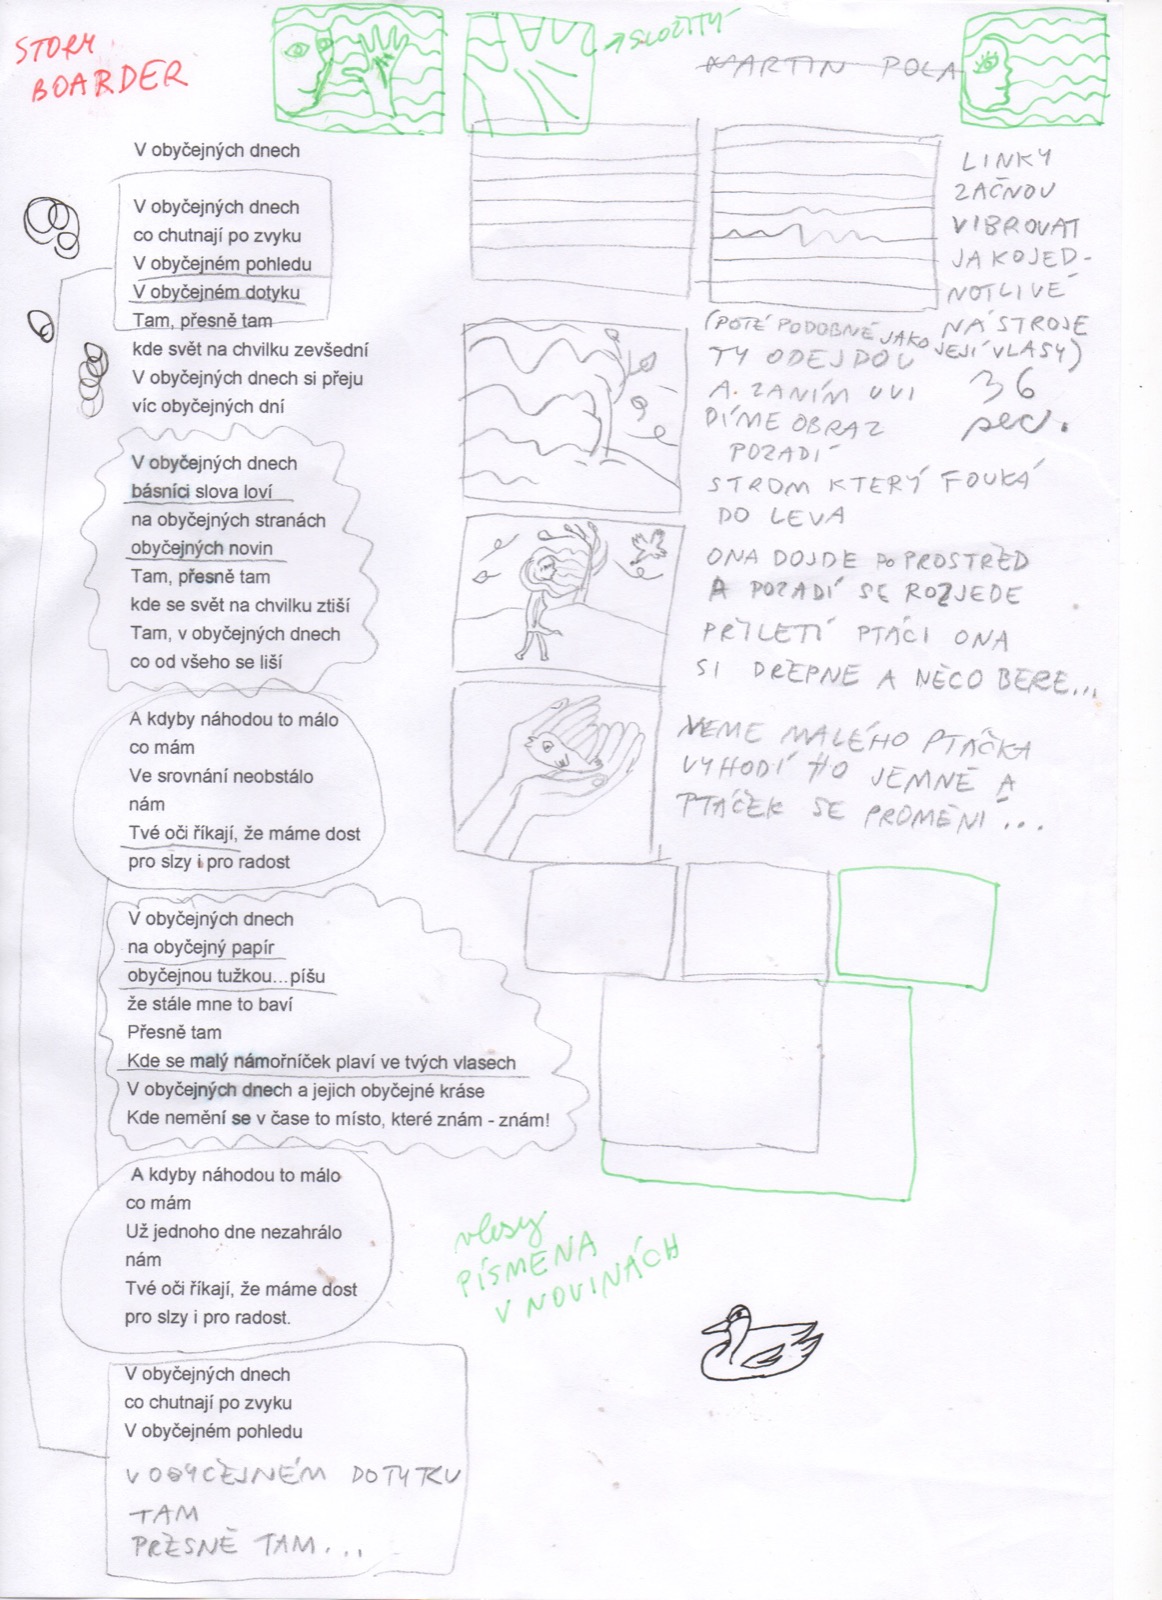 STORY
BOARDER
SLOŽITÝ
MARTIN POLA
V obyčejných dnech
V obyčejných dnech
co chutnají po zvyku
V obyčejném pohledu
V obyčejném dotyku
Tam, přesně tam
kde svět na chvilku zevšední
V obyčejných dnech si přeju
víc obyčejných dní
V obyčejných dnech
básníci slova loví
na obyčejných stranách
obyčejných novin
Tam, přesně tam
kde se svět na chvilku ztiší
Tam, v obyčejných dnech
co od všeho se liší
A kdyby náhodou to málo
co mám
Ve srovnání neobstálo
nám
Tvé oči říkají, že máme dost
pro slzy i pro radost
V obyčejných dnech
na obyčejný papír
obyčejnou tužkou...píšu
že stále mne to baví
Přesně tam
Kde se malý námořníček plaví ve tvých vlasech
V obyčejných dnech a jejich obyčejné kráse
Kde nemění se v čase to místo, které znám - znám!
A kdyby náhodou to málo
co mám
Už jednoho dne nezahrálo
nám
Tvé oči říkají, že máme dost
pro slzy i pro radost.
V obyčejných dnech
co chutnají po zvyku
V obyčejném pohledu
V OBYČEJNÉM DOTYKU
TAM
PŘESNĚ TAM...
LINKY
ZAČNOU
VIBROVAT
JAKOJED-
NOTLIVÉ
NÁSTROJE
(POTÉ PODOBNĚ JAKO JEJÍ VLASY)
TY ODEJDOU
A ZANÍM UVI
DÍME OBRAZ
POZADÍ
36
sec.
STROM KTERÝ FOUKÁ
DO LEVA
ONA DOJDE PO PROSTŘED
A POZADÍ SE ROZJEDE
PŘILETÍ PTÁCI ONA
SI DŘEPNE A NĚCO BERE...
VEME MALÉHO PTÁČKA
VYHODÍ HO JEMNĚ A
PTÁČEK SE PROMĚNI...
vlasy
PÍSMENA
V NOVINÁCH